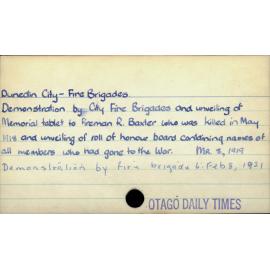 Dunedin City - Fire Brigades
Demonstration by City Fire Brigades and unveiling of
Memorial tablet to Fireman R. Baxter who was killed in May
1918 and unveiling of roll of honour board containing names of
all members who had gone to the War. MR 3, 1919
Demonstration by fire brigade 6: Feb 8, 1921
OTAGO DAILY TIMES